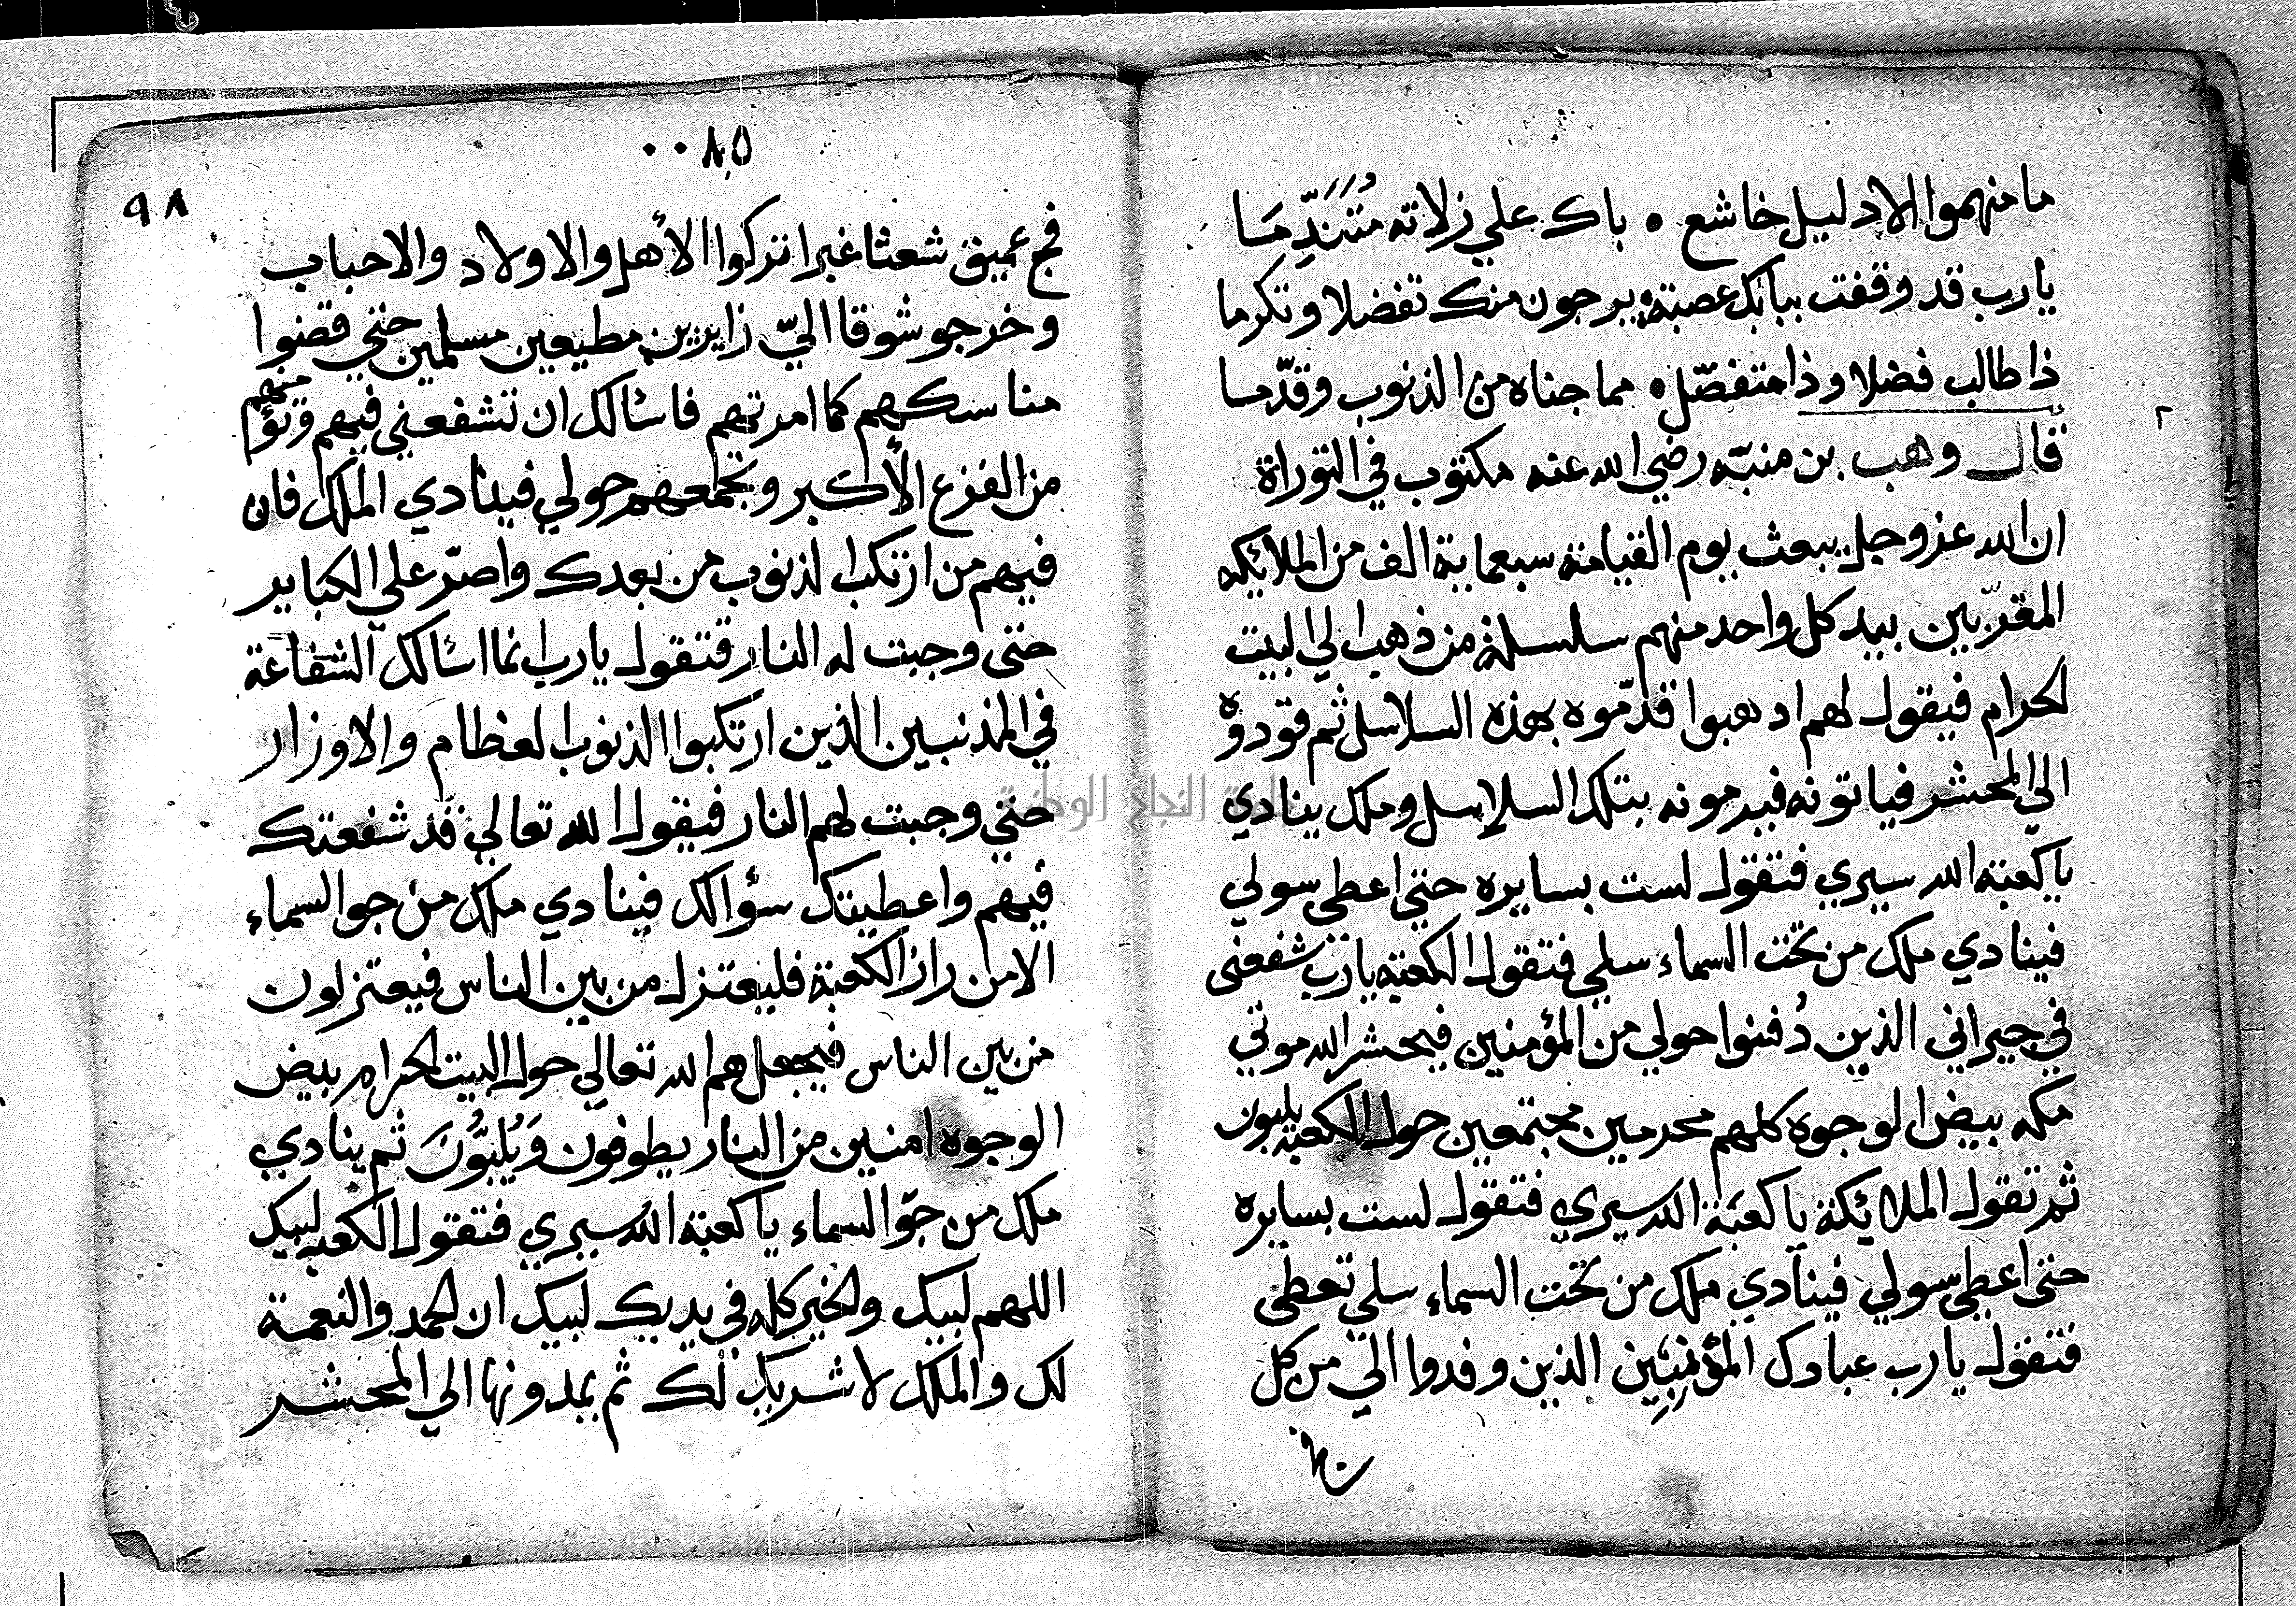 ما منهموا الا دليل خاشع • باك علي زلاته متندما
يارب قد وقفت ببابك عصبة يرجون منك تفضلا وتكرما
ذا طالب فضلا وذا متفضل • مما جناه من الذنوب وقدما
قال وهب بن منبه رضي الله عنه مكتوب في التوراة
ان الله عز وجل يبعث يوم القيامة سبعماية الف من الملائكه
المقربين بيد كل واحد منهم سلسلة من ذهب الي البيت
الحرام فيقول لهم ادهبوا قدموه بهذه السلاسل ثم قودوه
الي المحشر فياتونه فيرمونه بتلك السلاسل وملك ينادي
يا كعبة الله سيري فتقول لست بسايره حتي اعطي سولي
فينادي ملك من تحت السماء سلي فتقول الكعبه يارب شفعني
في جيراني الذين دُفنوا حولي من المؤمنين فيحشر الله موتي
مكه بيض الوجوه كلهم محرمين مجتمعين حول الكعبة يلبون
ثم تقول الملائكة يا كعبة الله سيري فتقول لست بسايره
حتي اعطي سولي فينادي ملك من تحت السماء سلي تعطي
فتقول يارب عبادك المؤمنين الذين وفدوا الي من كل
٠٠٨٥
٩٨
فج عميق شعثا غبرا تركوا الأهل والاولاد والاحباب
وخرجو شوقا اليّ زايرين مطيعين مسلمين حتي قضوا
مناسكهم كما امرتهم فاسالك ان تشفعني فيهم وتؤمنهم
من الفزع الأكبر وتجمعهم حولي فينادي الملك فان
فيهم من ارتكب الذنوب من بعدك واصرّ علي الكباير
حتى وجبت له النار فتقول يارب انما اسالك الشفاعة
في المذنبين الذين ارتكبوا الذنوب العظام والاوزار
حتي وجبت لهم النار فيقول الله تعالي قد شفعتك
فيهم واعطيتك سؤالك فينادي ملك من جو السماء
الا من زار الكعبة فليعتزل من بين الناس فيعتزلون
من بين الناس فيجعلهم الله تعالي حول البيت الحرام بيض
الوجوه امنين من النار يطوفون وَيُلبُّونَ ثم ينادي
ملك من جوّ السماء يا كعبة الله سيري فتقول الكعبه لبيك
اللهم لبيك والخير كله في يديك لبيك ان الحمد والنعمة
لك والملك لا شريك لك ثم يمدونها الي المحشر